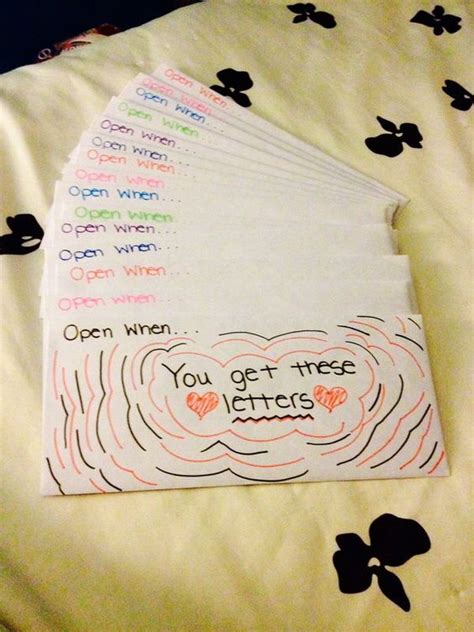 Open When...
Open When...
Open When...
Open When...
Open When...
Open When...
Open When...
Open When...
Open When...
Open When...
Open When...
Open When...
Open When...
Open When...
Open When...
You get these
letters